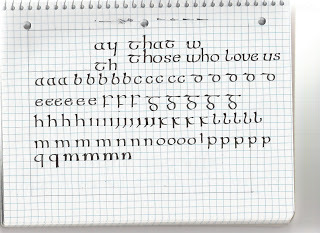 ay that w
th those who love us
a a a b b b b b c c c c c d d d d d
e e e e e e f f f g g g g g
h h h h ı ı ı ı j j j j j k k k k l l l l l
m m m m m n n n o o o o l p p p p p
q q m m m n